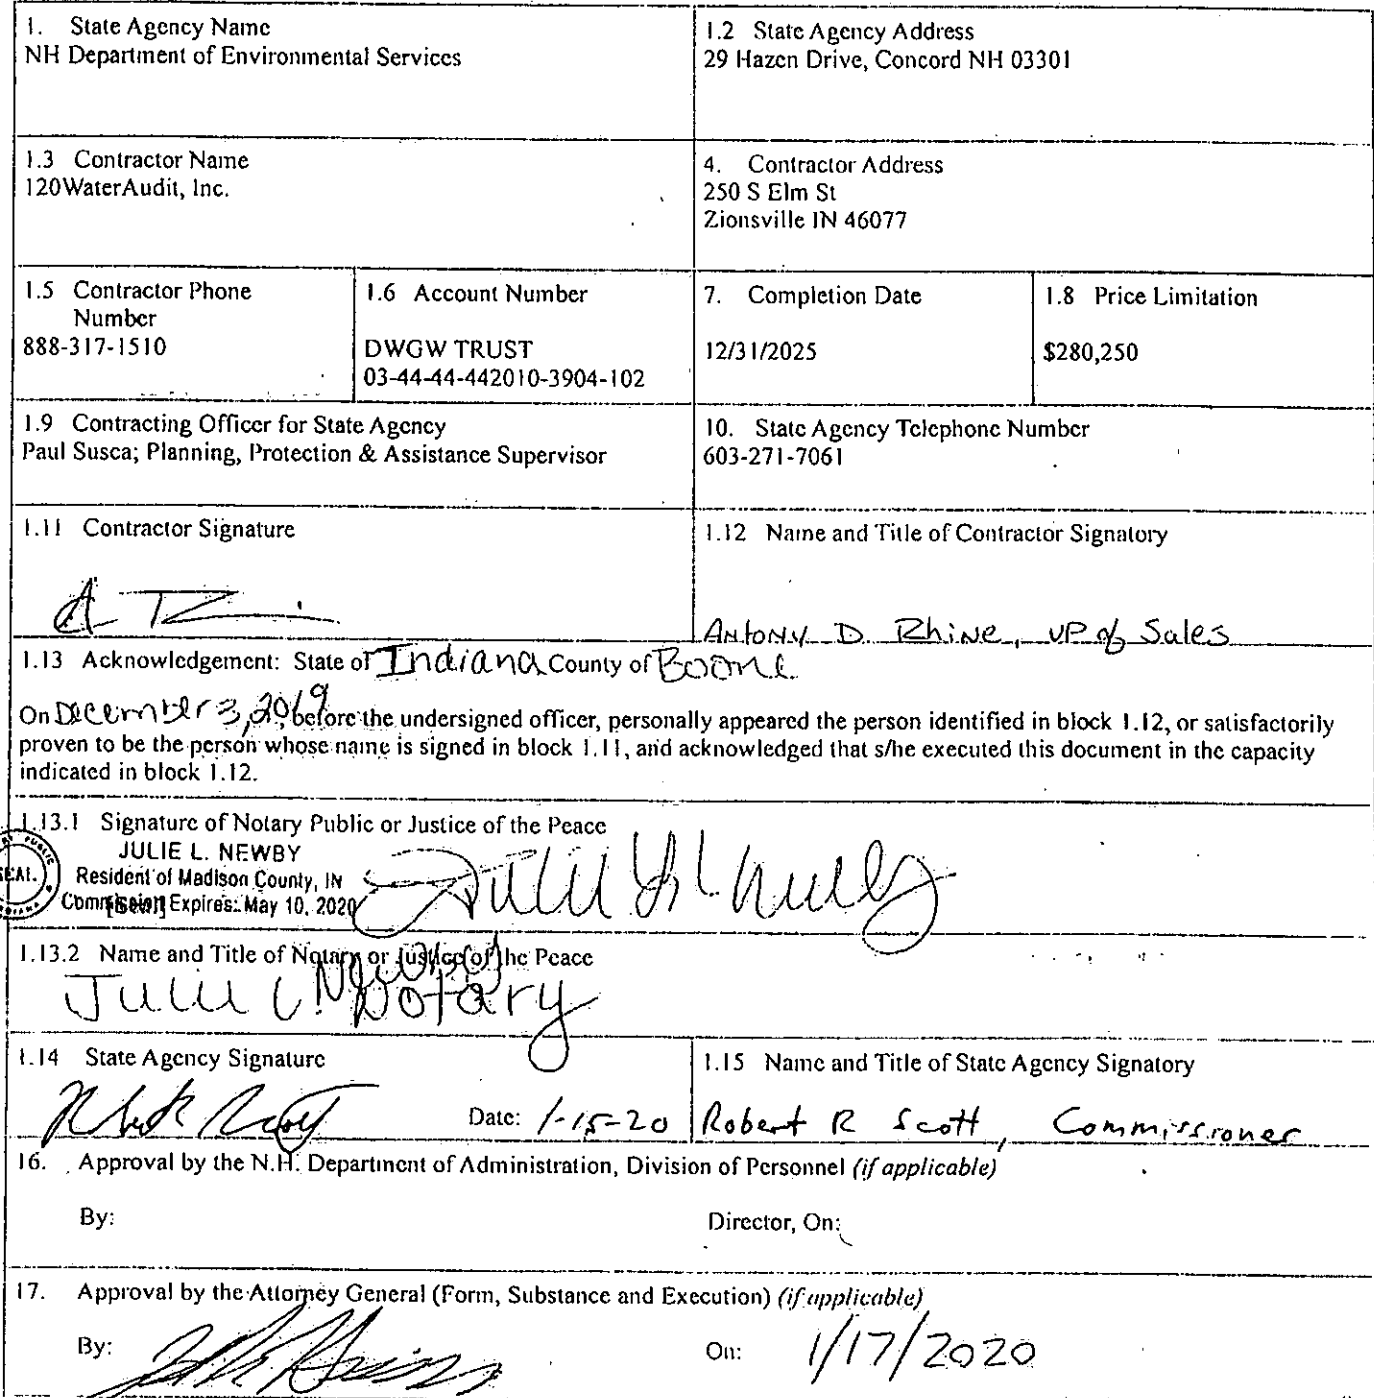 1. State Agency Name
NH Department of Environmental Services
1.2 State Agency Address
29 Hazen Drive, Concord NH 03301
1.3 Contractor Name
120WaterAudit, Inc.
4. Contractor Address
250 S Elm St
Zionsville IN 46077
1.5 Contractor Phone
Number
888-317-1510
1.6 Account Number
DWGW TRUST
03-44-44-442010-3904-102
7. Completion Date
12/31/2025
1.8 Price Limitation
$280,250
1.9 Contracting Officer for State Agency
Paul Susca; Planning, Protection & Assistance Supervisor
10. State Agency Telephone Number
603-271-7061
1.11 Contractor Signature
1.12 Name and Title of Contractor Signatory
Antony D. Rhine, VP of Sales
1.13 Acknowledgement: State of Indiana County of Boone
On December 3, 2019, before the undersigned officer, personally appeared the person identified in block 1.12, or satisfactorily
proven to be the person whose name is signed in block 1.11, and acknowledged that s/he executed this document in the capacity
indicated in block 1.12.
1.13.1 Signature of Notary Public or Justice of the Peace
SEAL
JULIE L. NEWBY
Resident of Madison County, IN
Commission Expires: May 10, 2020
[Seal]
1.13.2 Name and Title of Notary or Justice of the Peace
Julie L. Newby
Notary
1.14 State Agency Signature
Date: 1-15-20
1.15 Name and Title of State Agency Signatory
Robert R Scott, Commissioner
16. Approval by the N.H. Department of Administration, Division of Personnel (if applicable)
By:
Director, On:
17. Approval by the Attorney General (Form, Substance and Execution) (if applicable)
By:
On: 1/17/2020